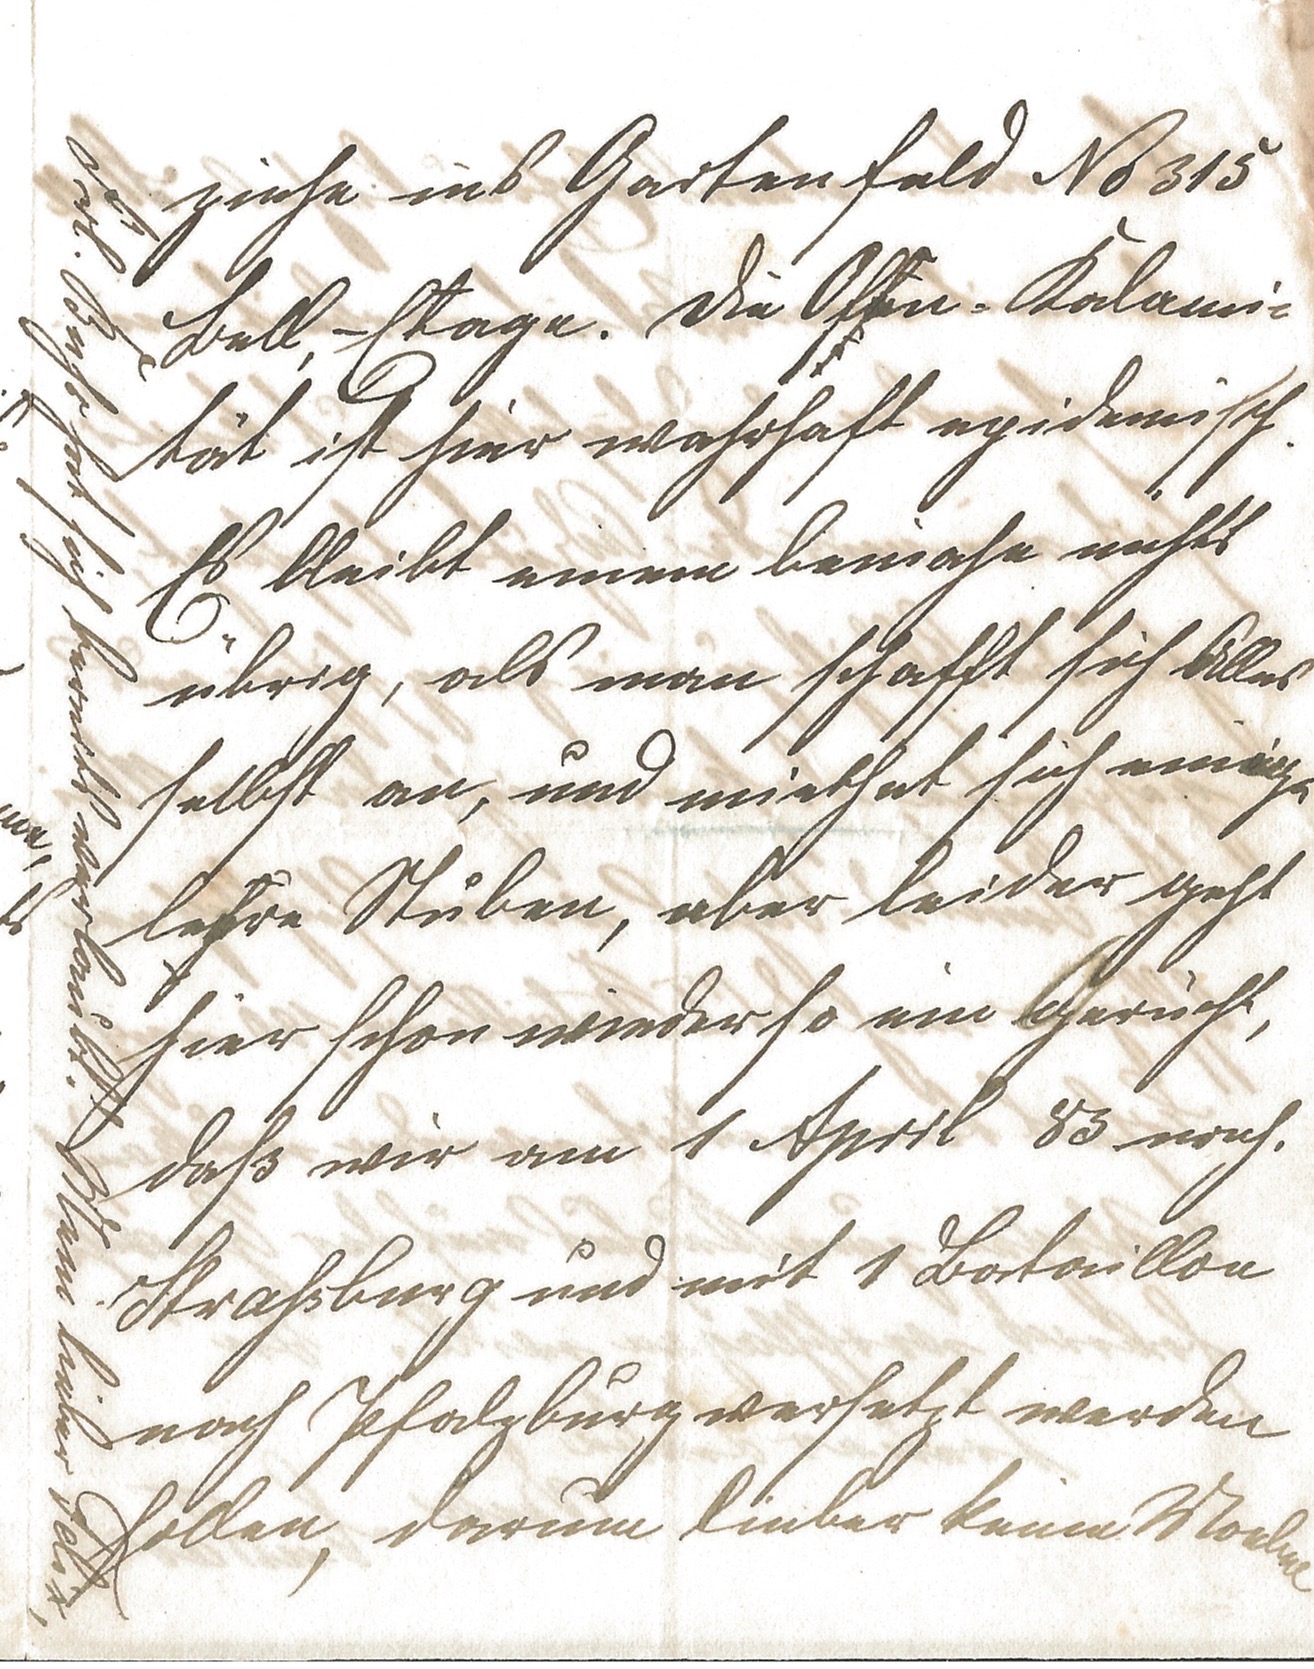 ziehe ins Gartenfeld No 315
Bell-Etage. Die Ofen-Kalami-
tät ist hier wahrhaft epidemisch.
Es bleibt einem beinahe nichts
übrig, als man schafft sich Alles
selbst an, und miethet sich einige
leere Stuben, aber leider geht
hier schon wieder so ein Gerücht,
daß wir am 1 April 83 nach
Straßburg und mit 1 Bataillon
nach Pfalzburg versetzt werden
sollen, darum lieber keine Moebel
hat sich bereits verlaubt. Mein lieber